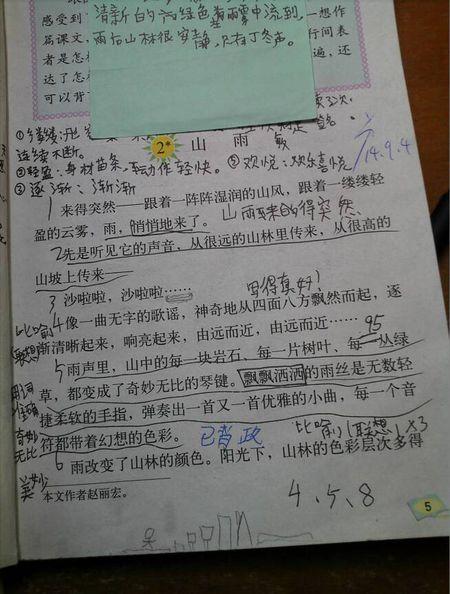 感受到
清新的
中流到
一想作
篇课文，
雨后山林很安静，只有丁冬声。
行间表
者是怎
遍，还
达了怎
可以背
①缕缕：形
连续不断。
2*
山 雨
②轻盈：身材苗条，动作轻快。⑤欢悦：欢乐喜悦
14.9.4
③逐渐：渐渐
1来得突然——跟着一阵阵湿润的山风，跟着一缕缕轻
盈的云雾，雨，悄悄地来了。山雨来的得突然
2先是听见它的声音，从很远的山林里传来，从很高的
山坡上传来——
写得真好！
3沙啦啦，沙啦啦……
比喻
4像一曲无字的歌谣，神奇地从四面八方飘然而起，逐
联想
渐清晰起来，响亮起来，由远而近，由远而近……
95
5雨声里，山中的每一块岩石、每一片树叶、每一丛绿
用词
草，都变成了奇妙无比的琴键。飘飘洒洒的雨丝是无数轻
准确
捷柔软的手指，弹奏出一首又一首优雅的小曲，每一个音
奇妙
无比
符都带着幻想的色彩。已背
比喻（联想）×3
6雨改变了山林的颜色。阳光下，山林的色彩层次多得
美妙
本文作者赵丽宏。
4、5、8
5